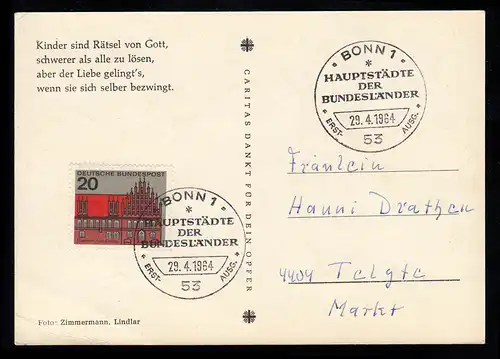 Kinder sind Rätsel von Gott,
schwerer als alle zu lösen,
aber der Liebe gelingt's,
wenn sie sich selber bezwingt.
CARITAS DANKT FÜR DEIN OPFER
BONN 1
HAUPTSTÄDTE
DER
BUNDESLÄNDER
29.4.1964
ERST- AUSG.
53
Fräulein
Hanni Drathen
4404 Telgte
Markt
DEUTSCHE BUNDESPOST
20
BONN 1
HAUPTSTÄDTE
DER
BUNDESLÄNDER
29.4.1964
ERST- AUSG.
53
Foto: Zimmermann, Lindlar